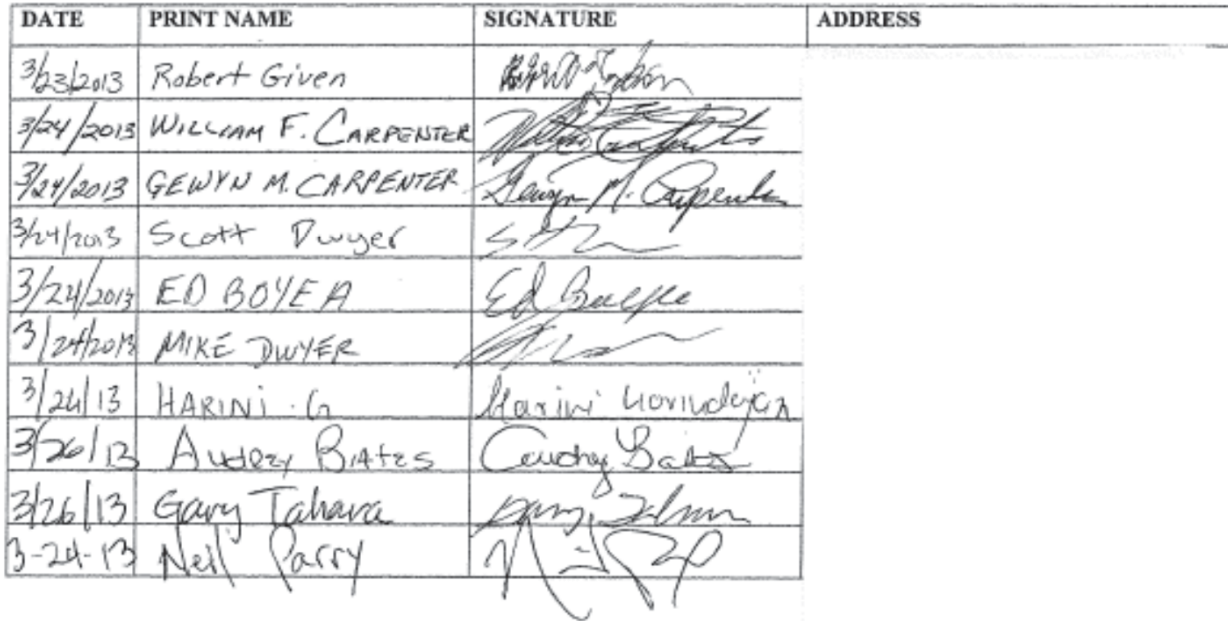 DATE PRINT NAME SIGNATURE ADDRESS
3/23/2013 Robert Given
3/24/2013 WILLIAM F. CARPENTER
3/24/2013 GEWYN M. CARPENTER Gewyn M. Carpenter
3/24/2013 Scott Dwyer
3/24/2013 ED BOYEA Ed
3/24/2013 MIKE DWYER
3/24/13 HARINI . G Harini
3/26/13 Audrey Bates Audrey Bates
3/26/13 Gary Tahara
3-24-13 Neil Parry